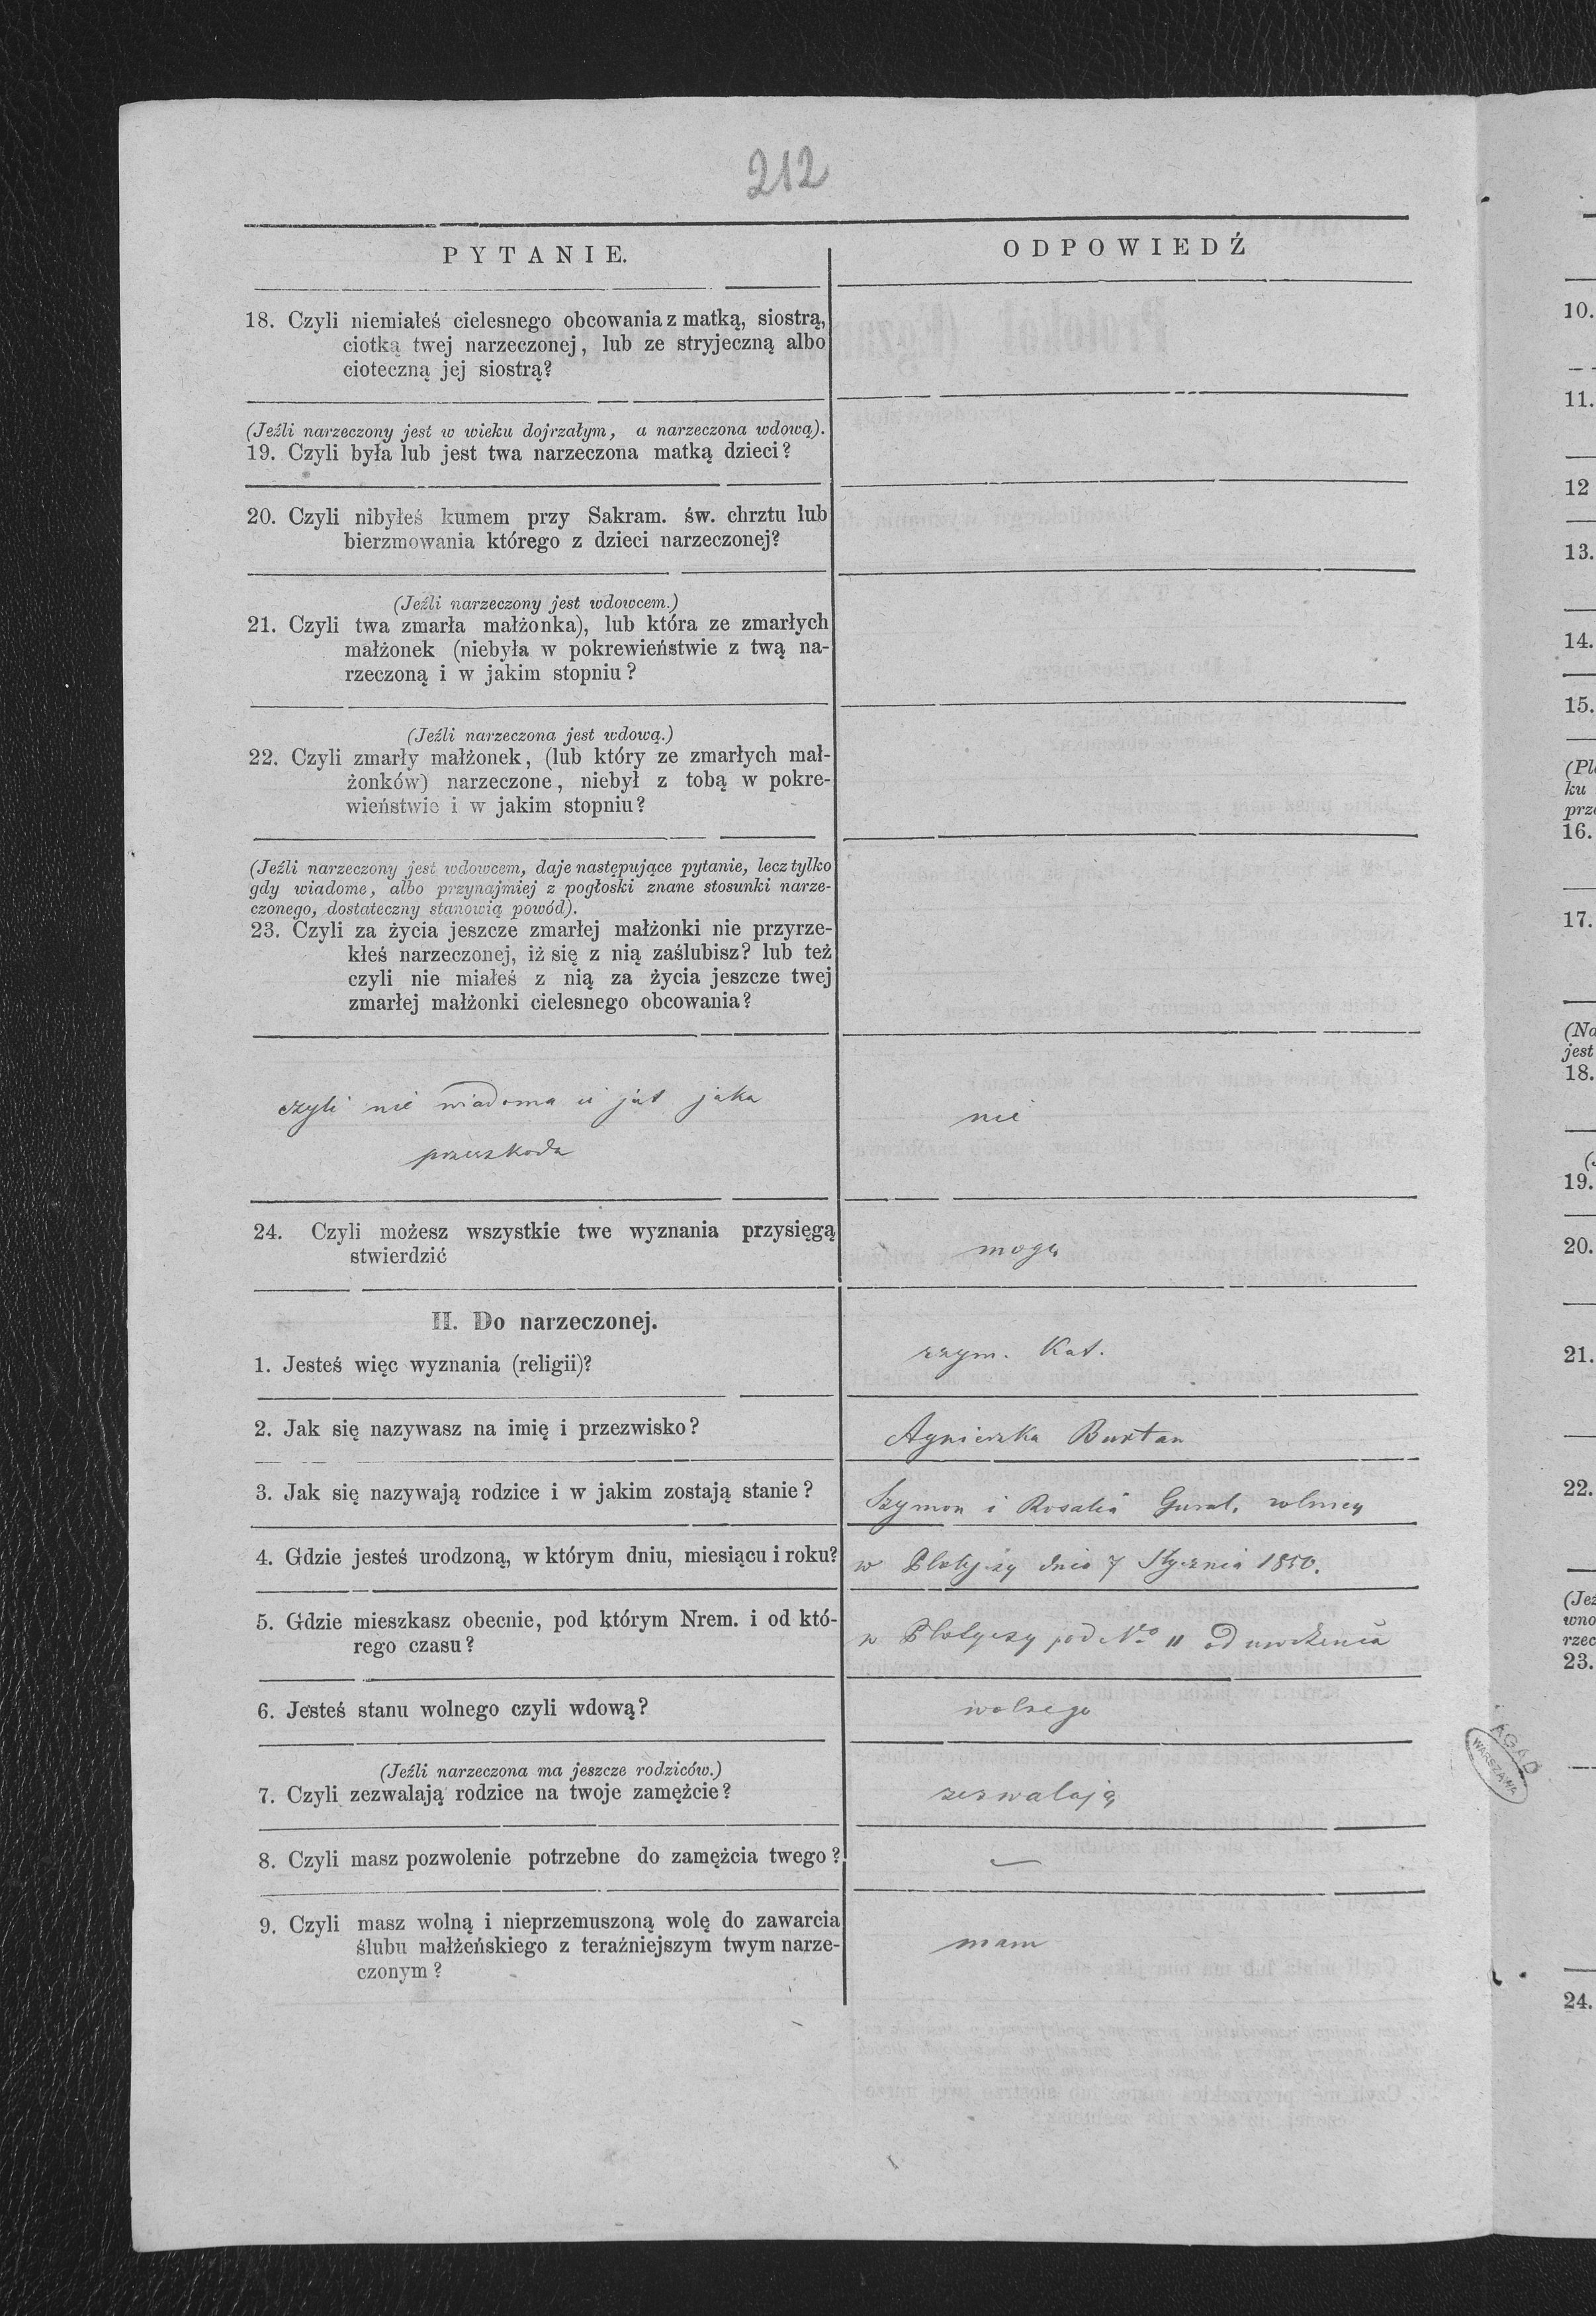 212
PYTANIE.
ODPOWIEDŹ
18. Czyli niemiałeś cielesnego obcowania z matką, siostrą,
ciotką twej narzeczonej, lub ze stryjeczną albo
cioteczną jej siostrą?
(Jeźli narzeczony jest w wieku dojrzałym, a narzeczona wdową).
19. Czyli była lub jest twa narzeczona matką dzieci?
20. Czyli nibyłeś kumem przy Sakram. św. chrztu lub
bierzmowania którego z dzieci narzeczonej?
(Jeźli narzeczony jest wdowcem.)
21. Czyli twa zmarła małżonka), lub która ze zmarłych
małżonek (niebyła w pokrewieństwie z twą na-
rzeczoną i w jakim stopniu?
(Jeźli narzeczona jest wdową.)
22. Czyli zmarły małżonek, (lub który ze zmarłych mał-
żonków) narzeczone, niebył z tobą w pokre-
wieństwie i w jakim stopniu?
(Jeźli narzeczony jest wdowcem, daje następujące pytanie, lecz tylko
gdy wiadome, albo przynajmiej z pogłoski znane stosunki narze-
czonego, dostateczny stanowią powód).
23. Czyli za życia jeszcze zmarłej małżonki nie przyrze-
kłeś narzeczonej, iż się z nią zaślubisz? lub też
czyli nie miałeś z nią za życia jeszcze twej
zmarłej małżonki cielesnego obcowania?
czyli nie wiadoma ci jest jaka
przeszkoda
nie
24. Czyli możesz wszystkie twe wyznania przysięgą
stwierdzić
mogę
II. Do narzeczonej.
1. Jesteś więc wyznania (religii)?
rzym. Kat.
2. Jak się nazywasz na imię i przezwisko?
Agnieszka Burtan
3. Jak się nazywają rodzice i w jakim zostają stanie?
Szymon i Rosalia Gural. rolnicy
4. Gdzie jesteś urodzoną, w którym dniu, miesiącu i roku?
w dnia 7 Stycznia 1850.
5. Gdzie mieszkasz obecnie, pod którym Nrem. i od któ-
rego czasu?
w Płotyczy pod No 11 od urodzenia
6. Jesteś stanu wolnego czyli wdową?
wolnego
(Jeźli narzeczona ma jeszcze rodziców.)
7. Czyli zezwalają rodzice na twoje zamężcie?
zezwalają
8. Czyli masz pozwolenie potrzebne do zamężcia twego?
9. Czyli masz wolną i nieprzemuszoną wolę do zawarcia
ślubu małżeńskiego z teraźniejszym twym narze-
czonym?
mam
10.
11.
12
13.
14.
15.
ku
16.
17.
jest
18.
19.
20.
21.
22.
wno
rzec
23.
24.
AGAD
WARSZAWA